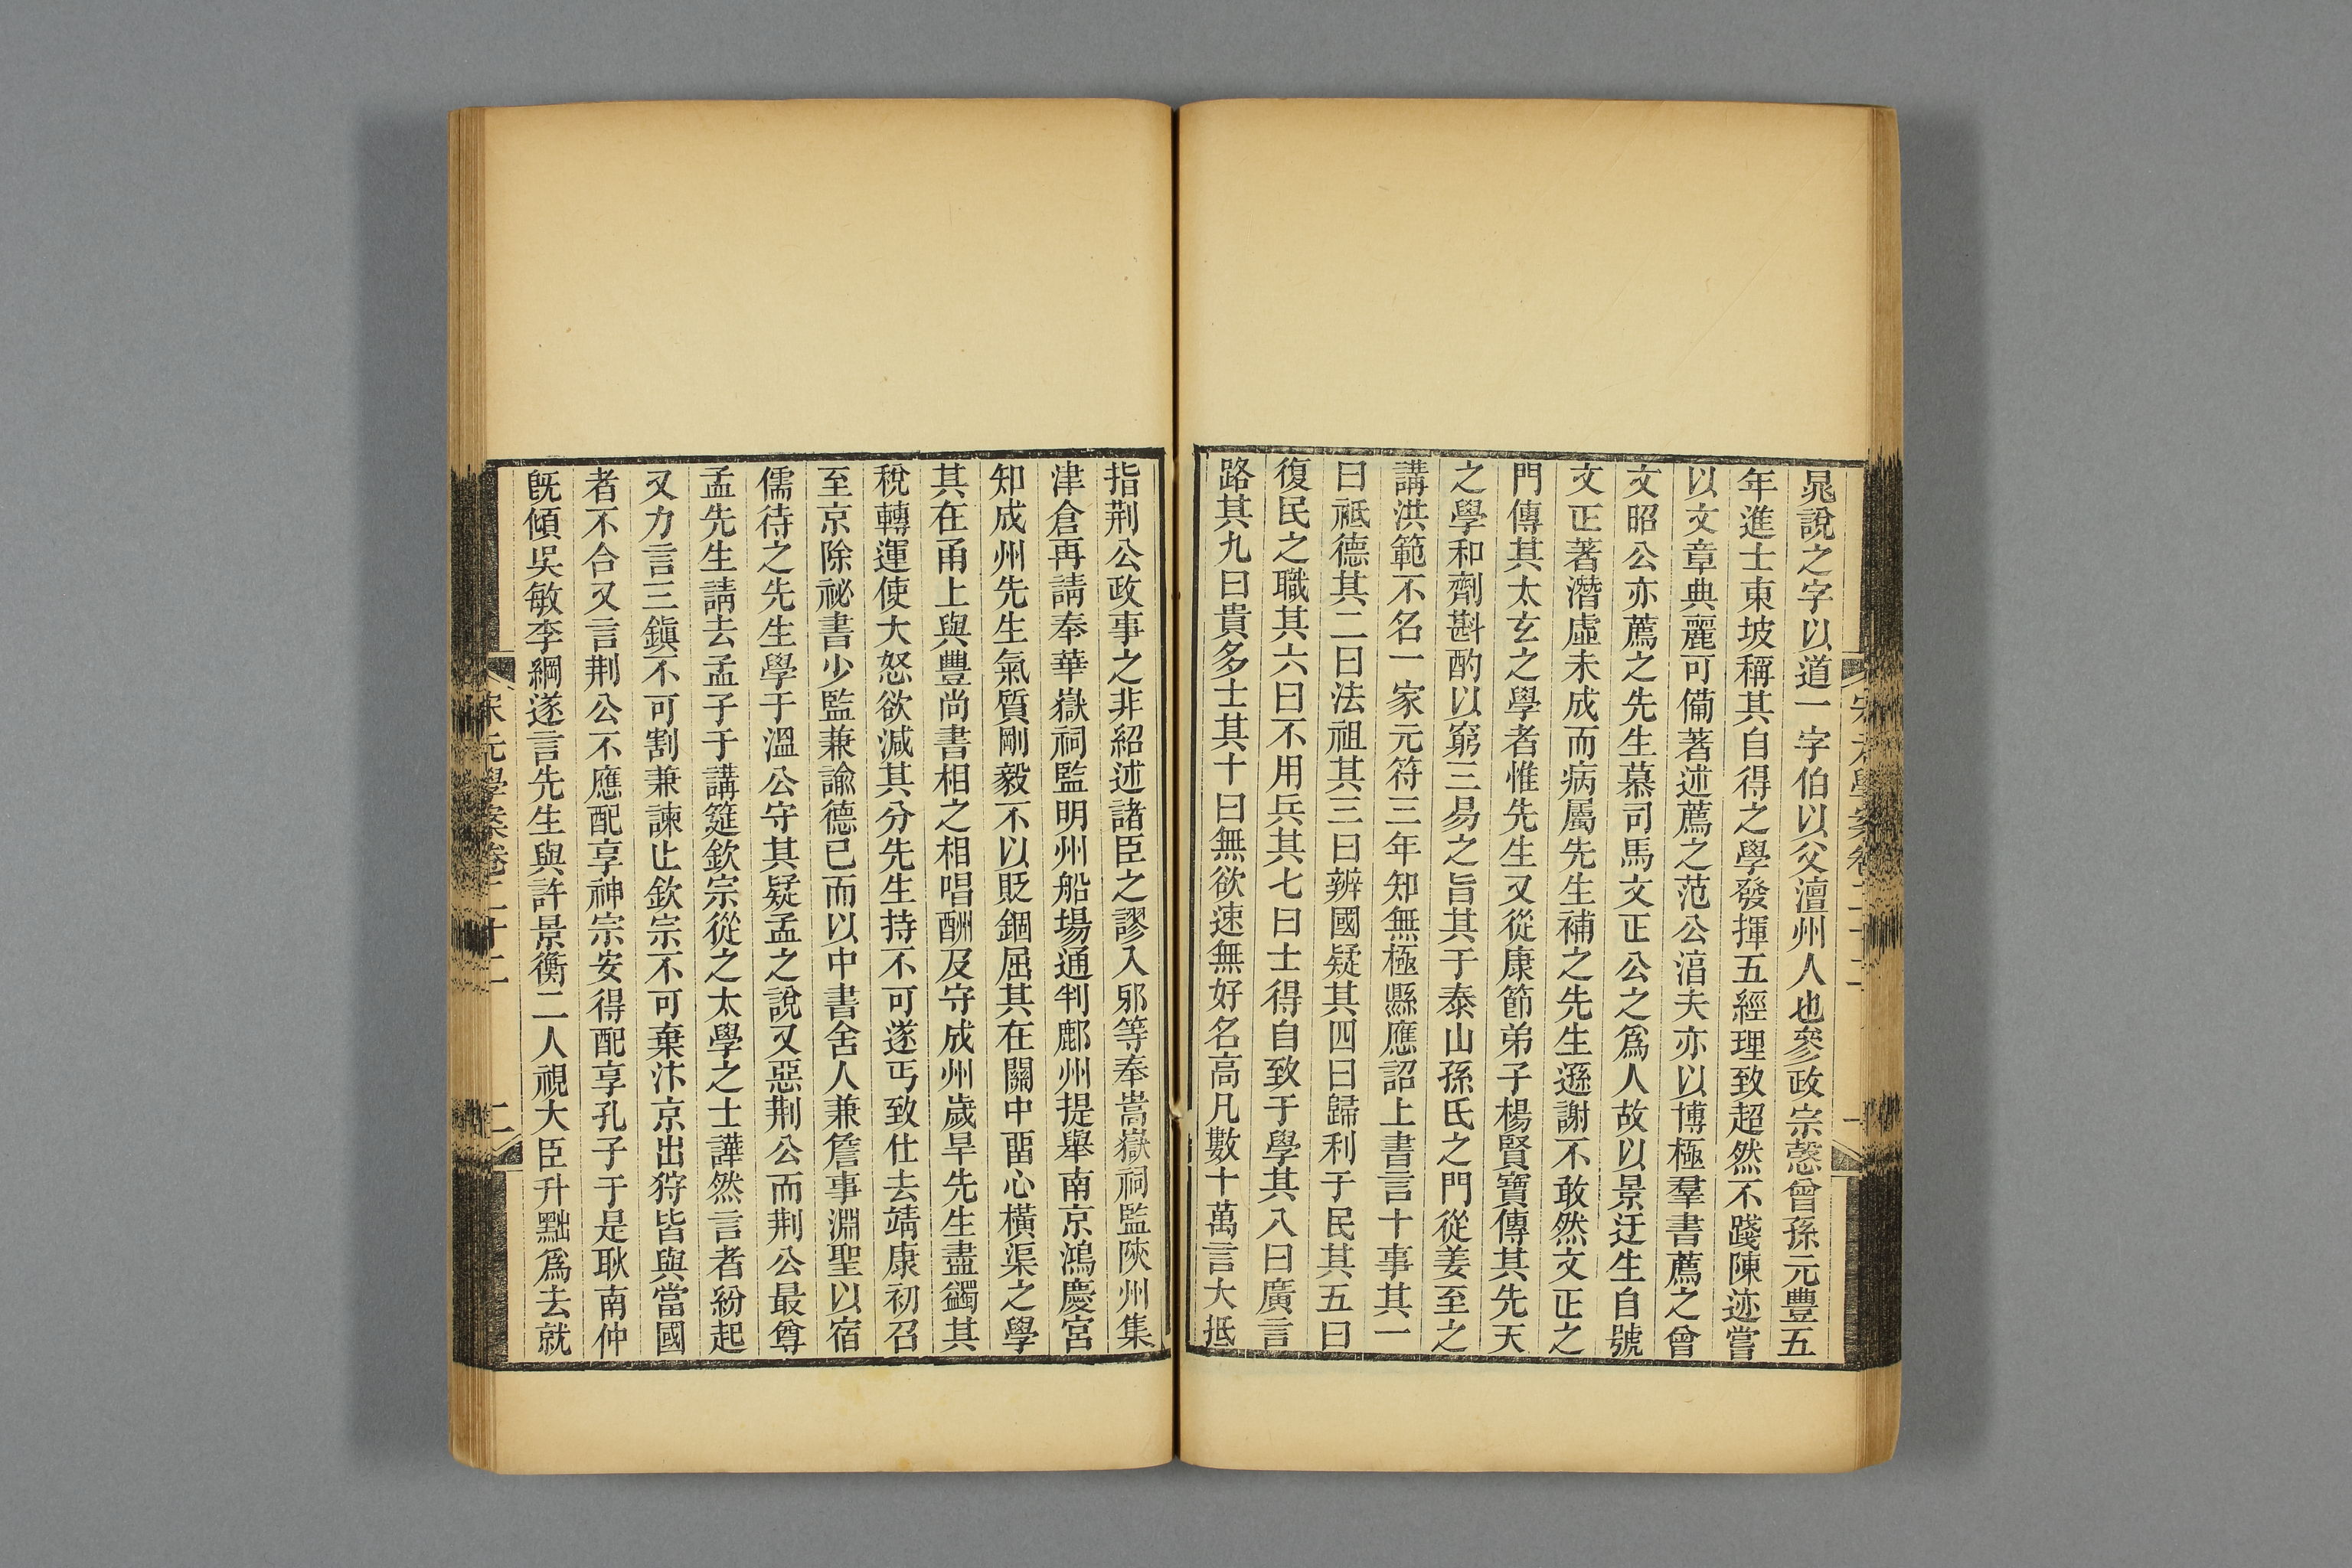 晁說之字以道一字伯以父澶州人也參政宗愨曾孫元豐五
年進士東坡稱其自得之學發揮五經理致超然不踐陳迹嘗
以文章典麗可備著述薦之范公淳夫亦以博極羣書薦之曾
文昭公亦薦之先生慕司馬文正公之爲人故以景迂生自號
文正著潛虛未成而病屬先生補之先生遜謝不敢然文正之
門傳其太玄之學者惟先生又從康節弟子楊賢寶傳其先天
之學和劑斟酌以窮三易之旨其于泰山孫氏之門從姜至之
講洪範不名一家元符三年知無極縣應詔上書言十事其一
曰祗德其二曰法祖其三曰辨國疑其四曰歸利于民其五曰
復民之職其六曰不用兵其七曰士得自致于學其八曰廣言
路其九曰貴多士其十曰無欲速無好名高凡數十萬言大抵
指荆公政事之非紹述諸臣之謬入邪等奉嵩嶽祠監陝州集
津倉再請奉華嶽祠監明州船場通判鄜州提舉南京鴻慶宮
知成州先生氣質剛毅不以貶錮屈其在關中畱心橫渠之學
其在甬上與豐尚書相之相唱酬及守成州歲旱先生盡蠲其
稅轉運使大怒欲減其分先生持不可遂丐致仕去靖康初召
至京除祕書少監兼諭德已而以中書舍人兼詹事淵聖以宿
儒待之先生學于溫公守其疑孟之說又惡荆公而荆公最尊
孟先生請去孟子于講筵欽宗從之太學之士譁然言者紛起
又力言三鎭不可割兼諫止欽宗不可棄汴京出狩皆與當國
者不合又言荆公不應配享神宗安得配享孔子于是耿南仲
旣傾吳敏李綱遂言先生與許景衡二人視大臣升黜爲去就
宋元學案卷二十二
二